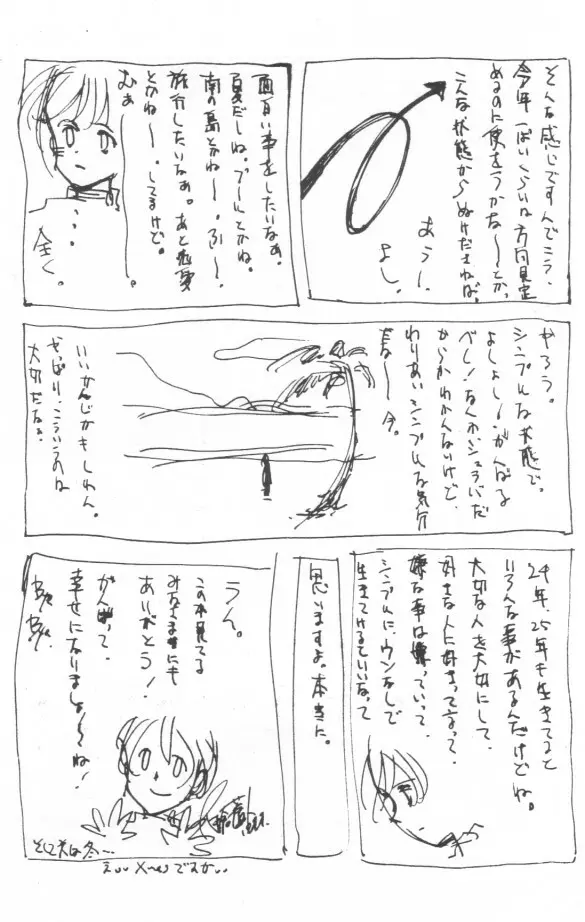 そんな感じですんでこう、
今年一ぱいくらいは方向見定
めるのに使をうかな〜とか。
こんな状態からぬけださねば。
あう〜、
よし。
面白い事をしたいなぁ。
夏だしね。プールとかね。
南の島とかね〜。ふ〜。
旅行したいなぁ。あと恋愛
とかね〜。してるけど。
むぁ〜。
・・・
全く。
やろう。
シンプルな状態で。
よしよし!がんばる
べし!なんかシュラバだ
からかわかんないけど、
わりあいシンプルな気分
だな〜今。
いいかんじかもしれん。
やっぱり、こういうのは
大切だなぁ。
24年、25年も生きてると
いろんな事があるんだけどね。
大切な人を大切にして、
好きな人に好きって言って、
嫌な事は嫌っていって、
シンプルに、ウソなしで
生きてけるといいなって
思いますよ。本当に。
うん。
この本見てる
みなさまにも
ありがとう!
がんばって、
幸せになりましょ〜ね!
そして次は冬…